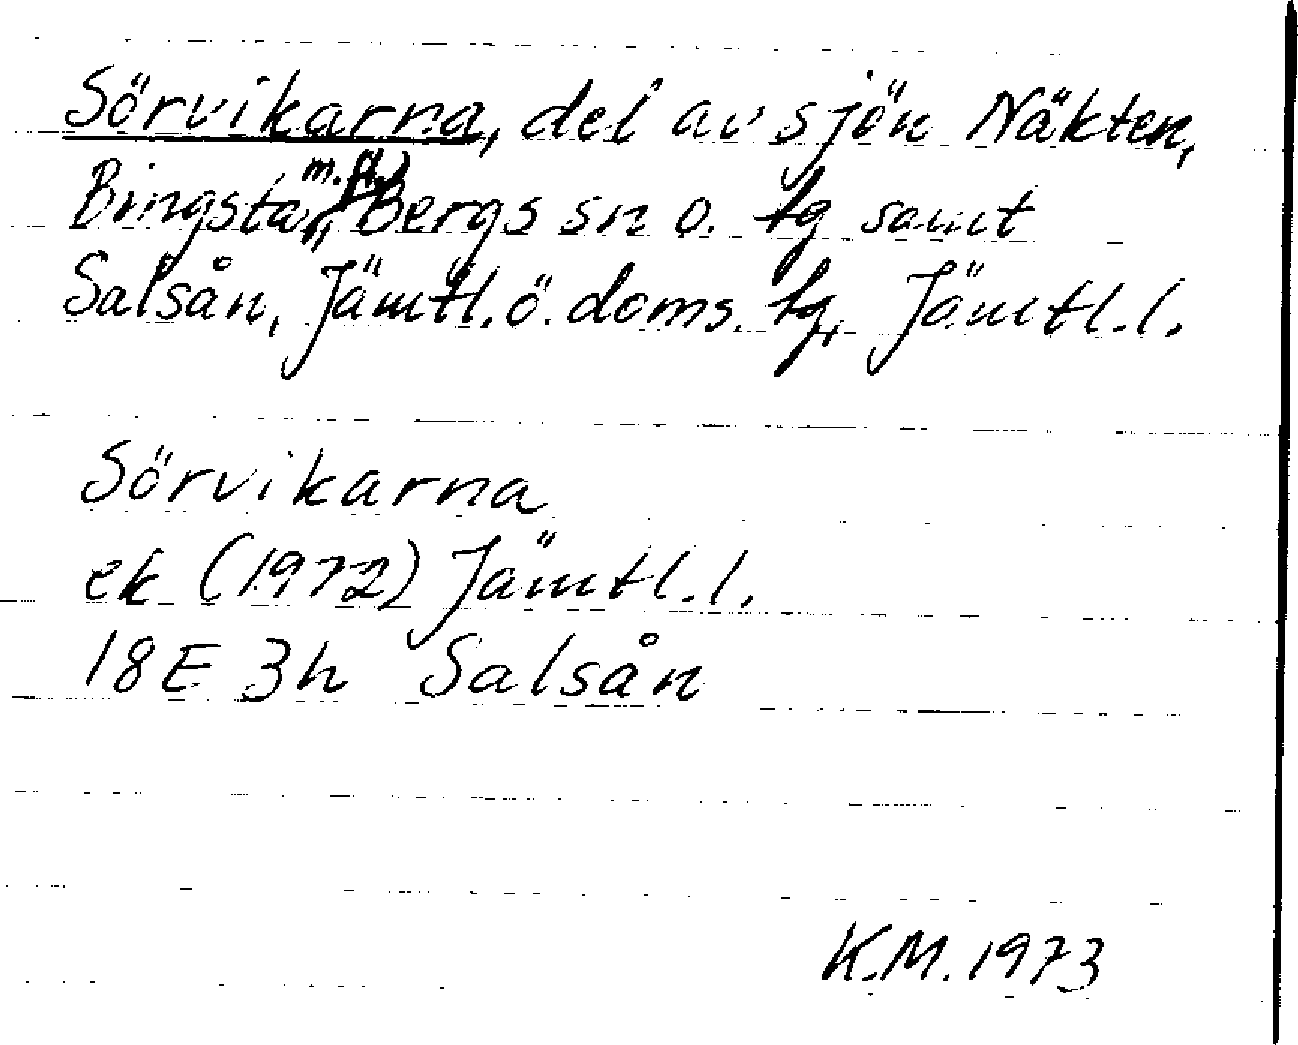 Sörvikarna, del av sjön Näkten,
Bingsta m.fl., Bergs sn o. tg samt
Salsån, Jämtl. ö. doms. tg, Jämtl. l.
Sörvikarna
ek (1972) Jämtl. l.
18E 3h Salsån
K.M. 1973